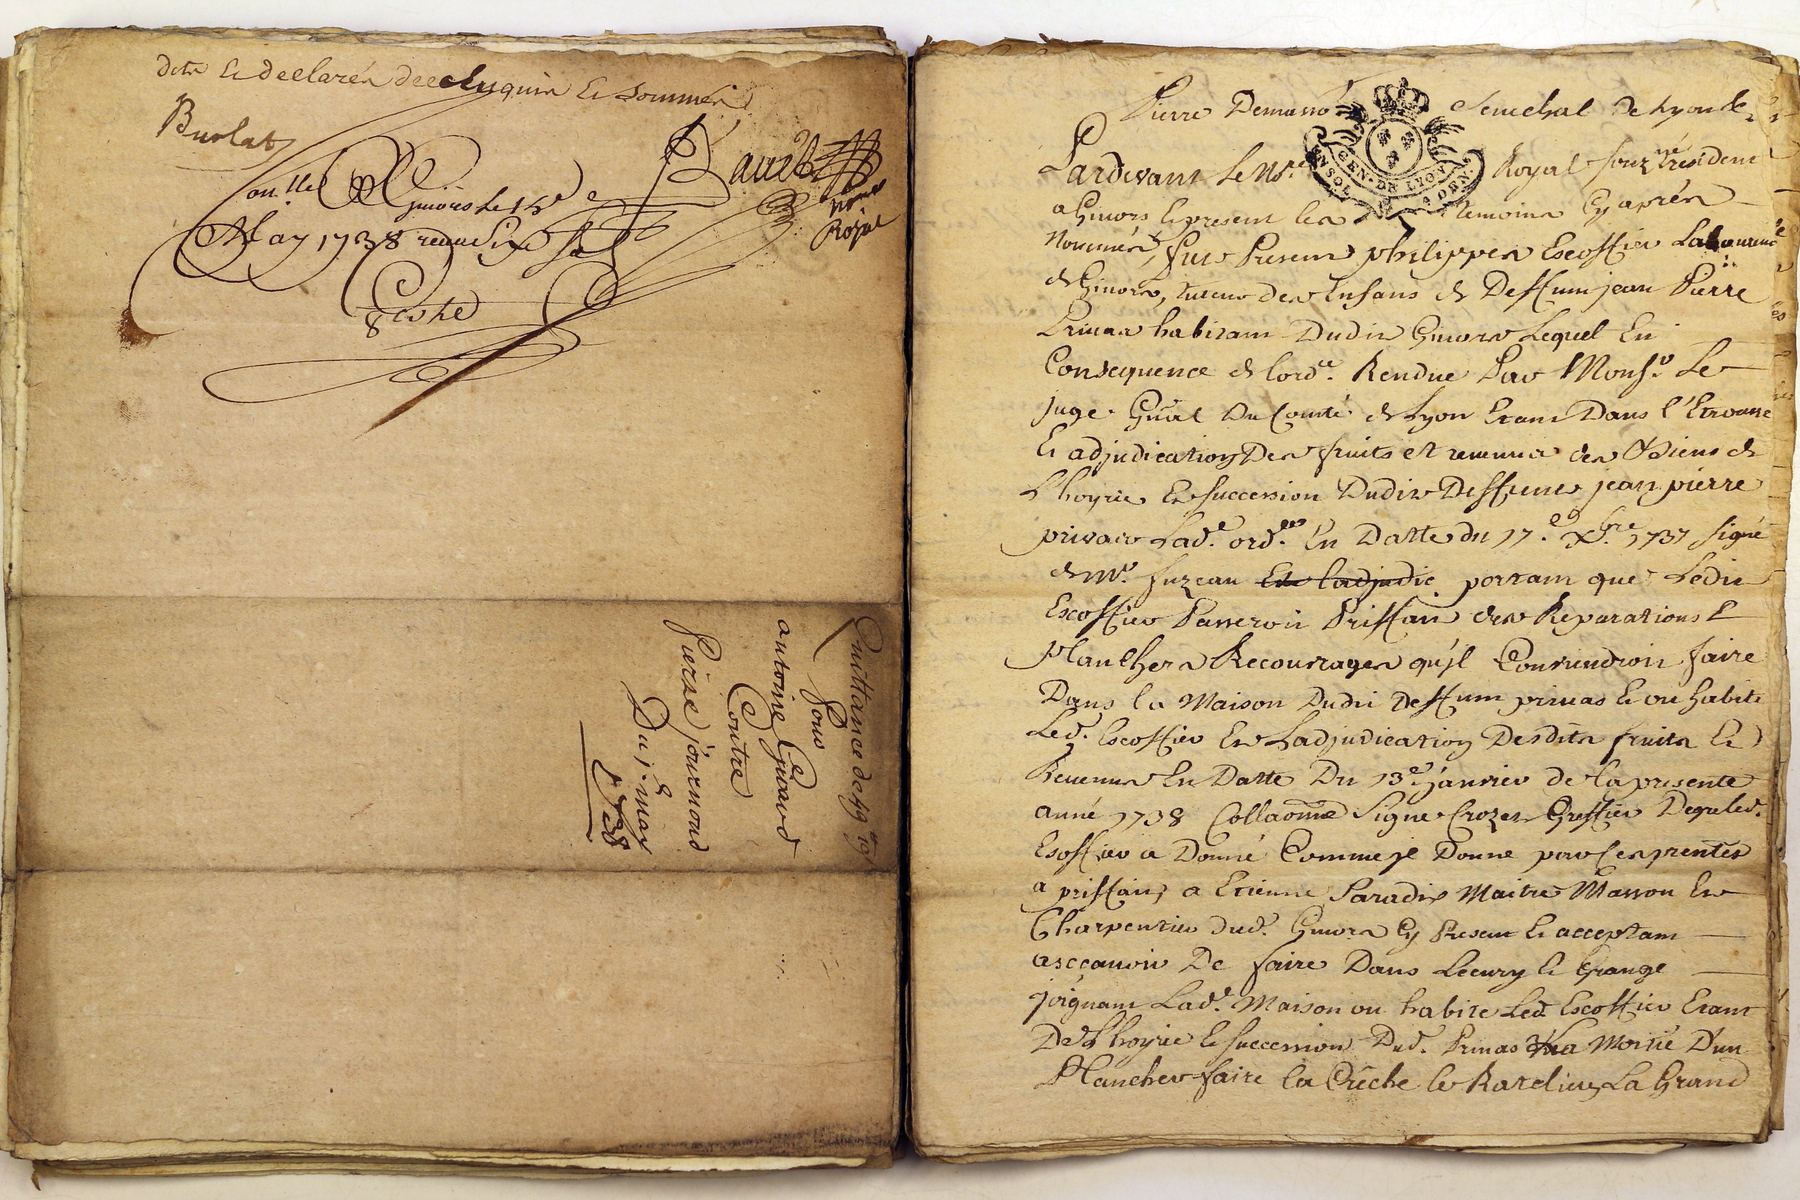 dette et declarés de ce enquis et sommés
Burlat
Conlle a Givors le 15e
May 1738 recu Six s
Coste
nore
Royal
Quittance de 49 lt 19s
Pour
antoine Guard
Contre
Pierre journoud
Du 1er may
1738
Pierre Demasso Senechal de Lyon &c
GEN. DE LYON
Pardevant Le Nre Royal souzné Resident
a Givors le present les temoins cy aprés
nommés, fut Present philippes Escoffier Laboureur
de Givors, tuteur des Enfans de Deffunt jean Pierre
Privas habitant Dudit Givors Lequel En
Consequence de l'ordce. Rendue Par Monsr. Le
juge Gnal Du Comté de Lyon Etant Dans l'Etrousse
Et adjudication Des fruits et revenus des Biens de
L'hoyrie Et succession Dudit Deffunt jean pierre
privas Lade. ordce. En Datte du 17e. Xbre. 1737 signé
de Mr. fuzeau portant que Ledit
Escoffier Passeroit Prisfait des Reparations Et
Planchers Recourrages qu'jl Conviendroit faire
Dans la Maison Dudit Deffunt privas Et ou habite
Led. Escoffier Et Ladjudication Desdits fruits Et
Revenus En Datte Du 13e janvier de la presente
anné 1738 Collaonné Signé Crozet Greffier Depuis led.
Escoffier a Donné Comme jl Donne par Ces prentes
a prisfait, a Etienne Paradis Maitre Masson Et
Charpentier dud. Givors Cy Present Et acceptant
asçavoir De faire Dans Lecury Et Grange
joignant Lade. Maison ou habite Led. Escoffier Etant
De L'hoyrie Et succession Dud. Privas La Moitié D'un
Plancher faire la Crêche le Ratelier, La Grand